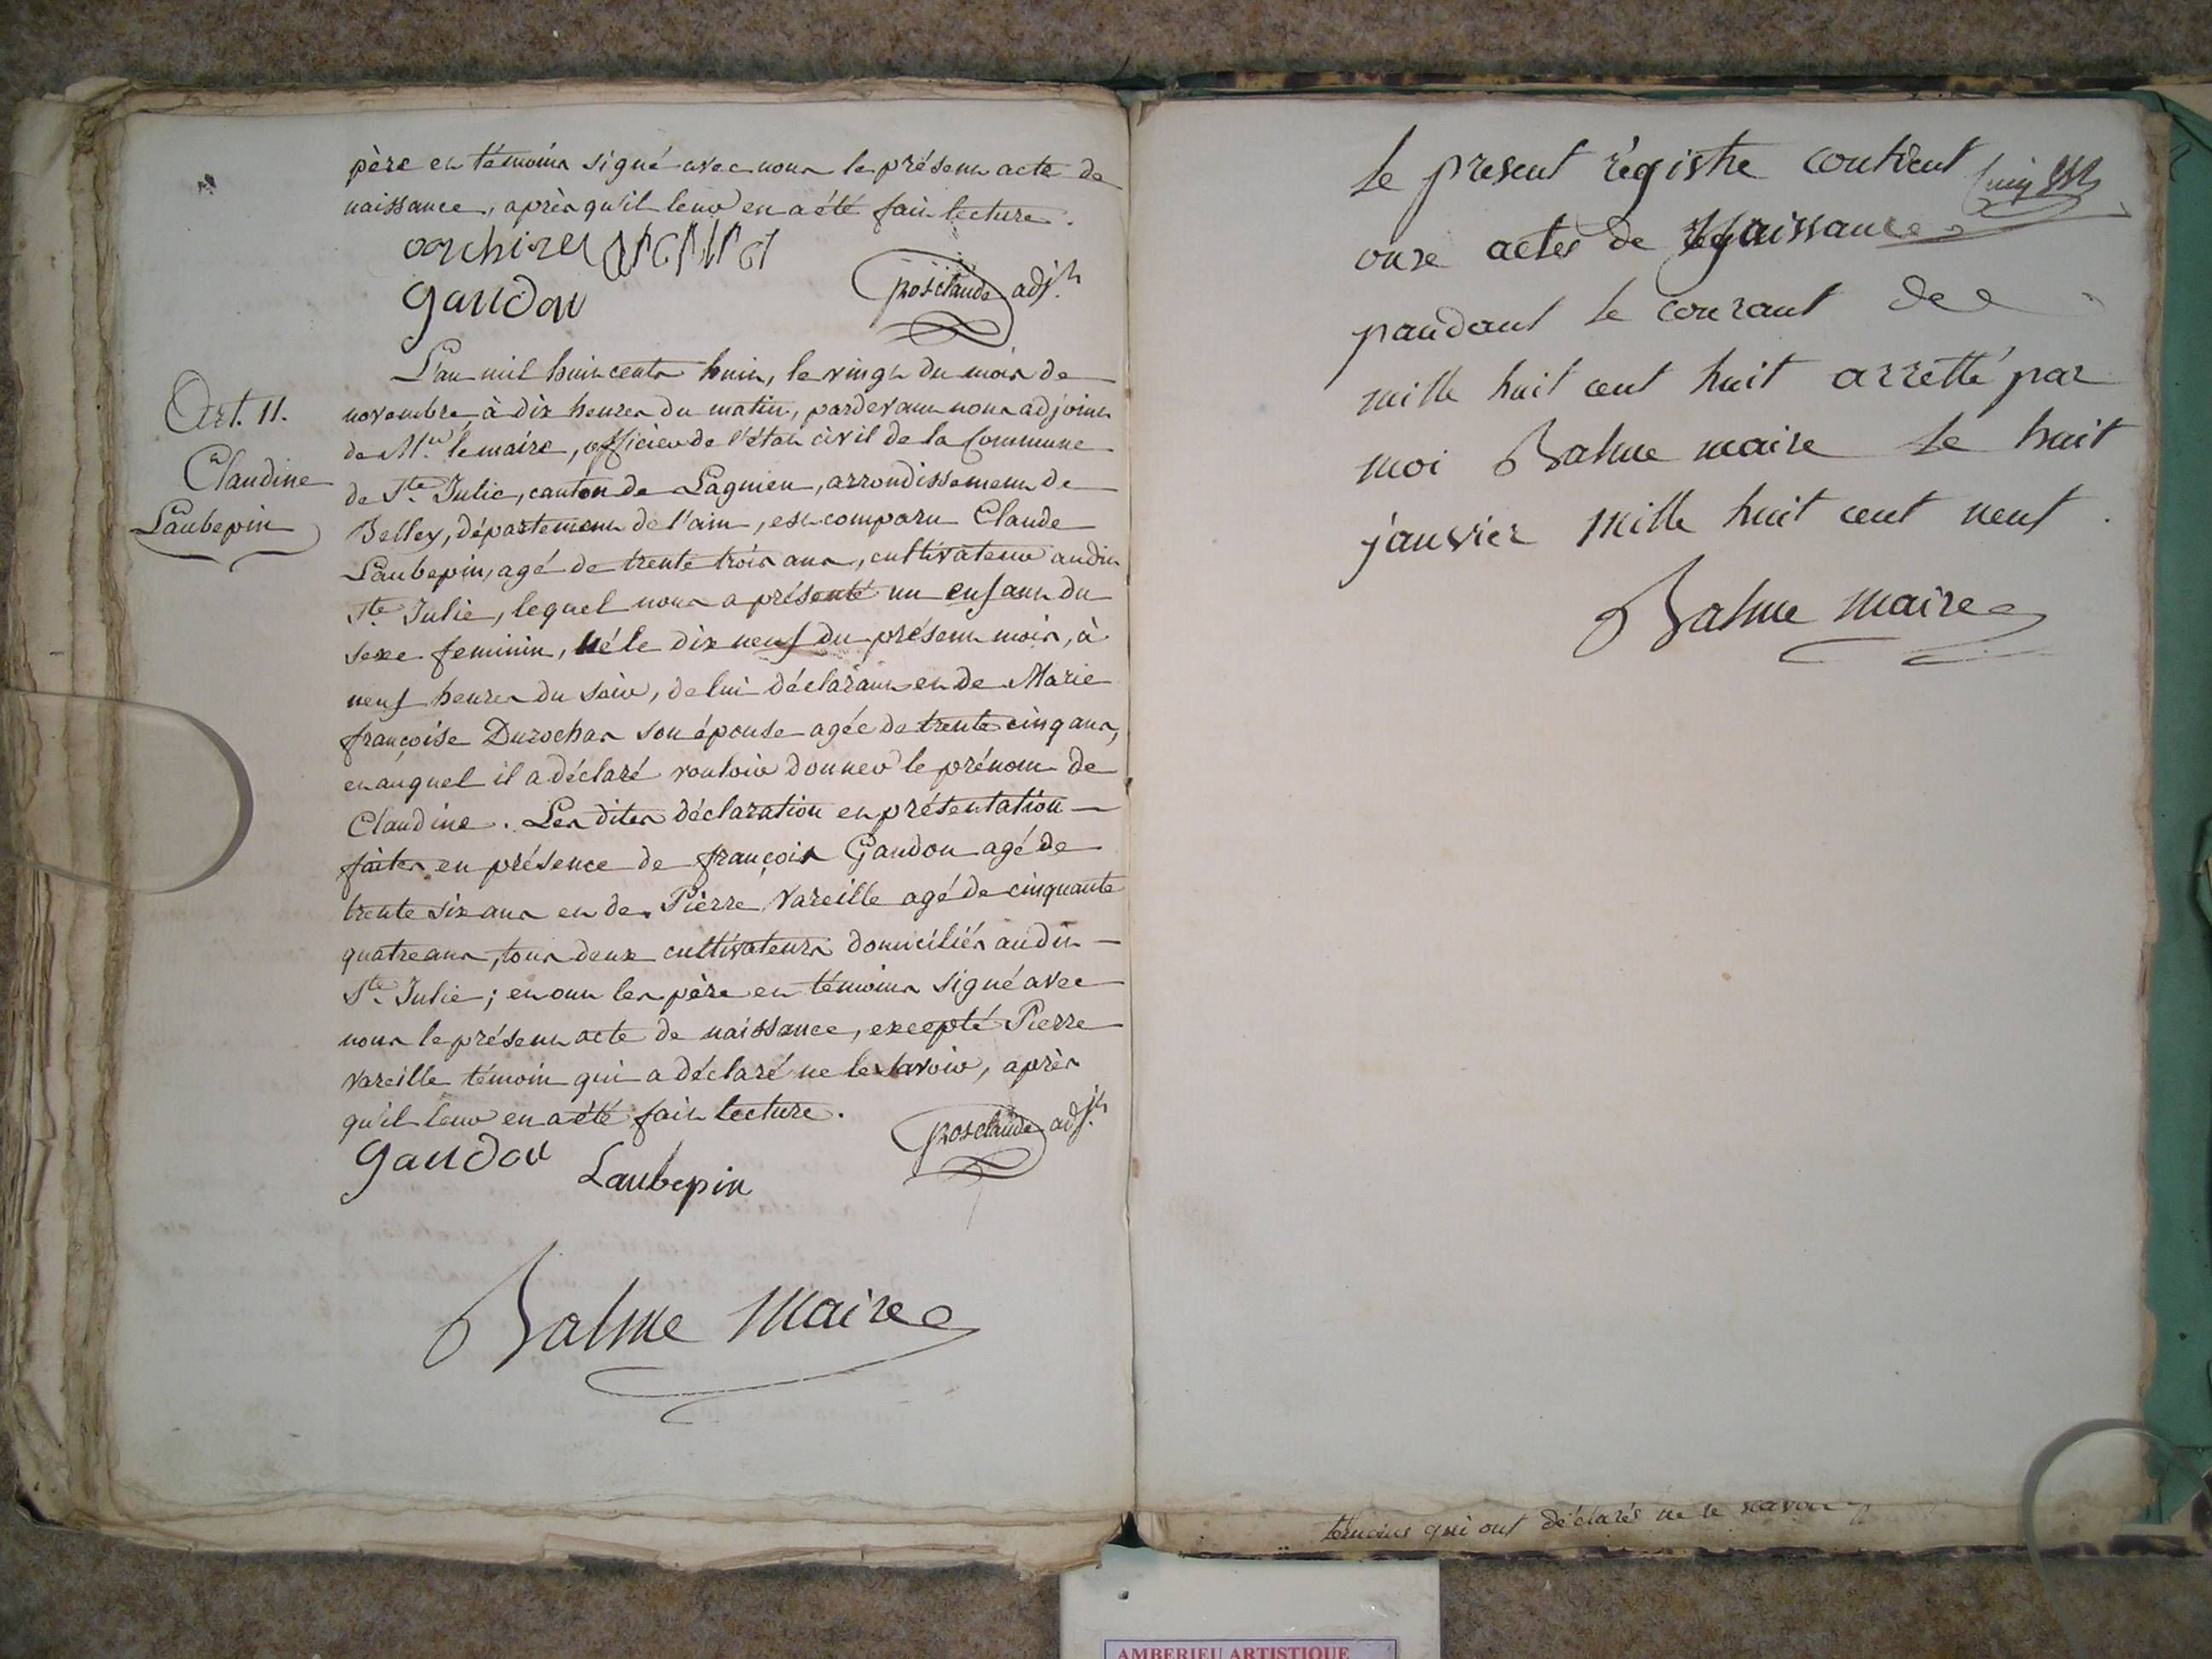 père et témoins signé avec nous le présent acte de
naissance, après qu'il leur en a été fait lecture.
gaudon
posclaude adjt.
Art. 11.
Claudine
Laubepin
L'an mil huit cents huit, le vingt du mois de
novembre à dix heures du matin, pardevant nous adjoint
de Mr. le maire, officier de l'état civil de la Commune
de Ste. Julie, canton de Lagnieu, arrondissement de
Belley, département de l'ain, est comparu Claude
Laubepin, agé de trente trois ans, cultivateur audit
Ste. Julie, lequel nous a présenté un enfant du
sexe feminin, né le dix neuf du présent mois, à
neuf heures du soir, de lui déclarant et de Marie
françoise Durochas son épouse agée de trente cinq ans,
et auquel il a déclaré vouloir donner le prénom de
Claudine. Les dites déclaration et présentation
faites en présence de françois Gaudon agé de
trente six ans et de Pierre Vareille agé de cinquante
quatre ans, tous deux cultivateurs domiciliés audit
Ste. Julie; et ont les père et témoins signé avec
nous le présent acte de naissance, excepté Pierre
vareille témoin qui a déclaré ne le savoir, après
qu'il leur en a été fait lecture.
gaudon Laubepin
posclaude adjt.
Balme maire
Le present régistre contient
onze actes de Naissance
pandant le courant de
mille huit cent huit arretté par
moi Balme maire le huit
janvier mille huit cent neuf.
Balme maire
témoins qui ont déclarés ne le savoir
AMBERIEU ARTISTIQUE